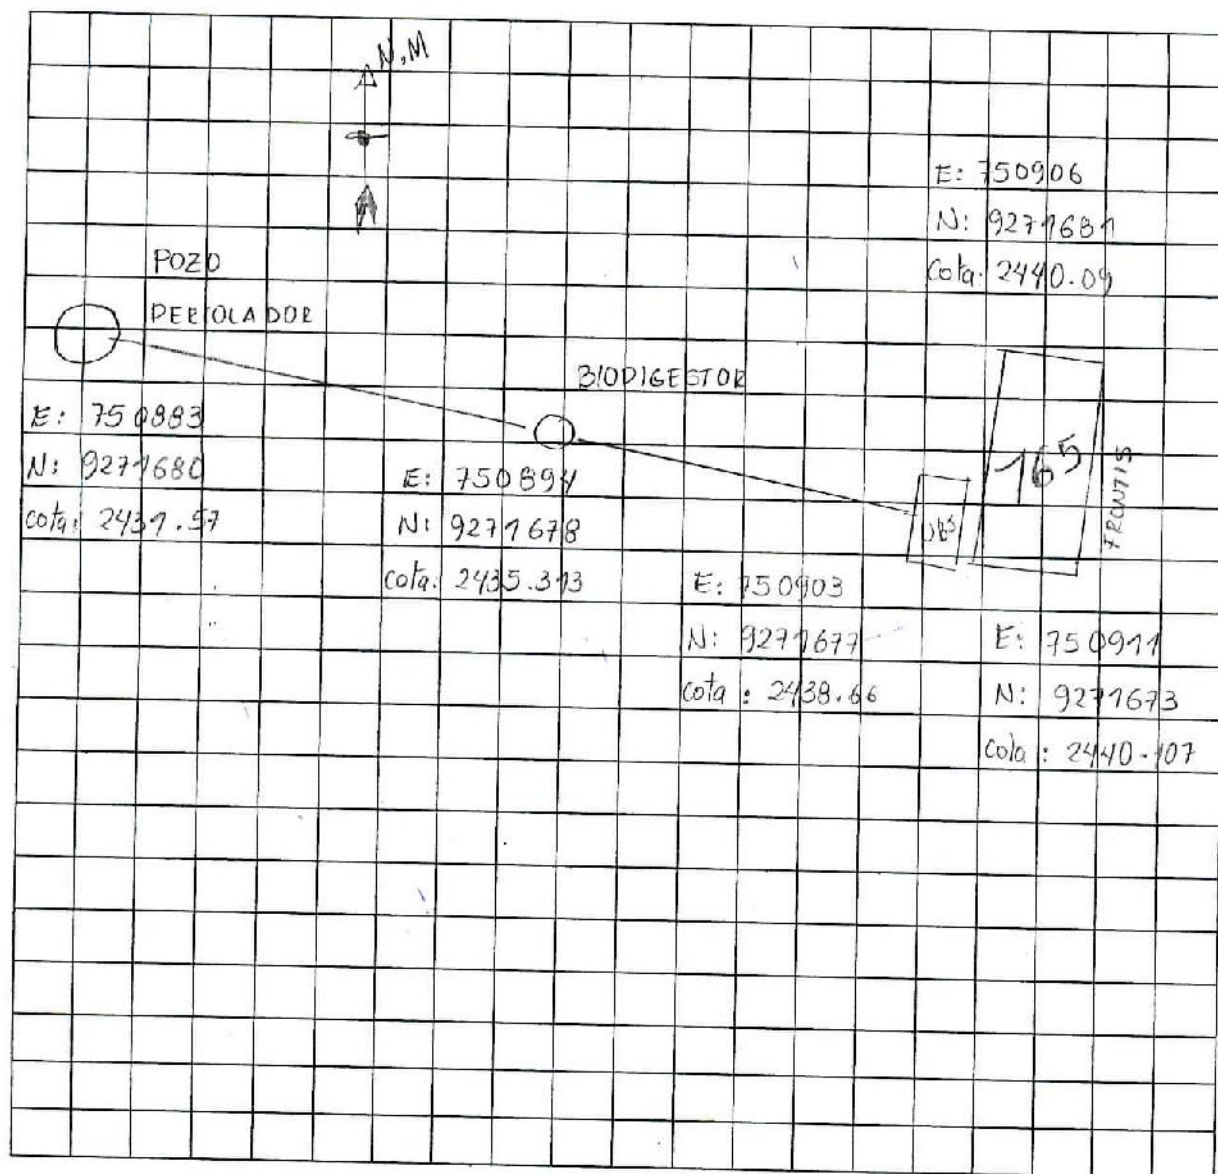 N.M
E: 750906
N: 9271681
Cota: 2440.09
POZO
PERCOLADOR
BIODIGESTOR
E: 750883
N: 9271680
cota: 2431.57
E: 750894
N: 9271678
cota: 2435.313
165
FRONTIS
UBS
E: 750903
N: 9271677
cota: 2438.66
E: 750911
N: 9271673
cota: 2440.107